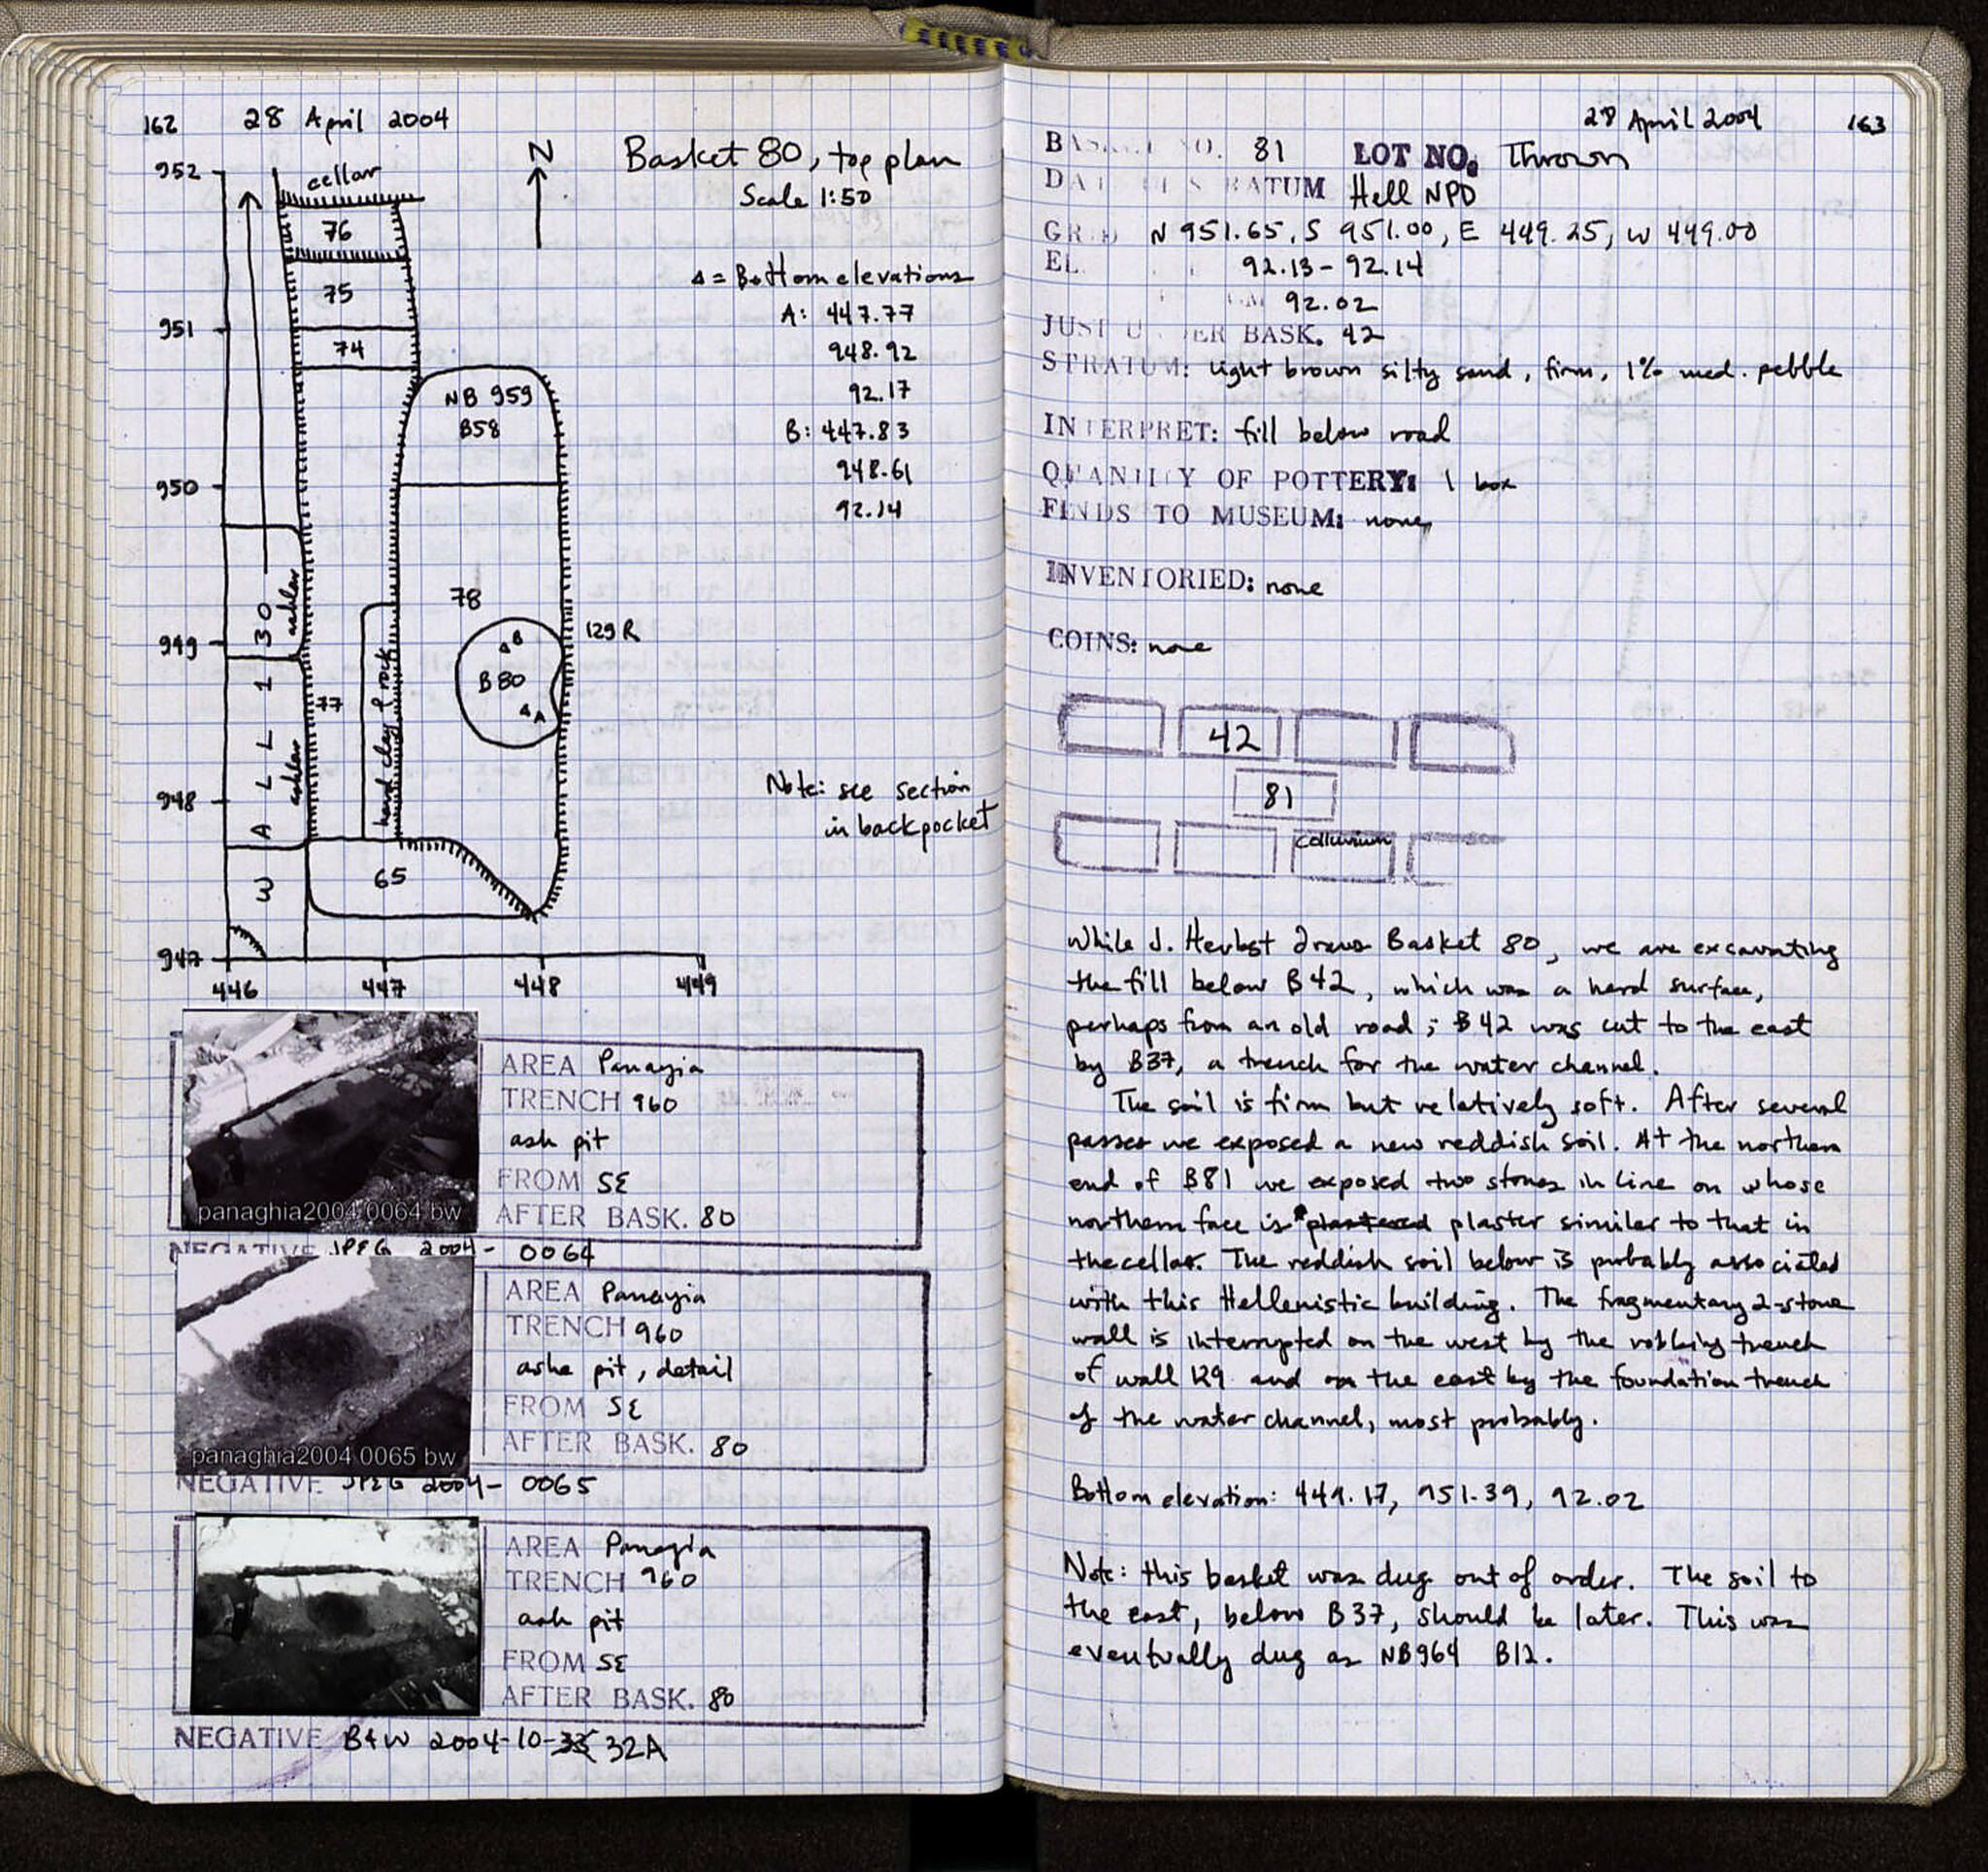 162 28 April 2004
Basket 80, top plan
Scale 1:50
N
952
951
950
949
948
947
446 447 448 449
cellar
76
75
74
NB 959
B58
78
B80
B
A
129 R
77
hard clay & rock
65
WALL 130
ashlar
ashlar
Δ = Bottom elevations
A: 447.77
948.92
92.17
B: 447.83
948.61
92.14
Note: see section
in backpocket
AREA Panayia
TRENCH 960
ash pit
FROM SE
AFTER BASK. 80
panaghia2004 0064 bw
NEGATIVE JPEG 2004- 0064
AREA Panayia
TRENCH 960
ashe pit, detail
FROM SE
AFTER BASK. 80
panaghia2004 0065 bw
NEGATIVE JPEG 2004- 0065
AREA Panayia
TRENCH 960
ash pit
FROM SE
AFTER BASK. 80
NEGATIVE B+W 2004-10-33 32A
28 April 2004 163
BASKET NO. 81 LOT NO. Thrown
DATE OF STRATUM Hell NPD
GRID N 951.65, S 951.00, E 449.25, W 449.00
EL. 92.13 - 92.14
92.02
JUST UNDER BASK. 42
STRATUM: light brown silty sand, firm, 1% med. pebble
INTERPRET: fill below road
QUANTITY OF POTTERY: 1 box
FINDS TO MUSEUM: none
INVENTORIED: none
COINS: none
42
81
colluvium
While J. Herbst draws Basket 80, we are excavating
the fill below B42, which was a hard surface,
perhaps from an old road; B42 was cut to the east
by B37, a trench for the water channel.
The soil is firm but relatively soft. After several
passes we exposed a new reddish soil. At the northern
end of B81 we exposed two stones in line on whose
northern face is plastered plaster similar to that in
the cellar. The reddish soil below is probably associated
with this Hellenistic building. The fragmentary 2-stone
wall is interrupted on the west by the robbing trench
of wall 129 and on the east by the foundation trench
of the water channel, most probably.
Bottom elevation: 449.17, 951.39, 92.02
Note: this basket was dug out of order. The soil to
the east, below B37, should be later. This was
eventually dug as NB964 B12.